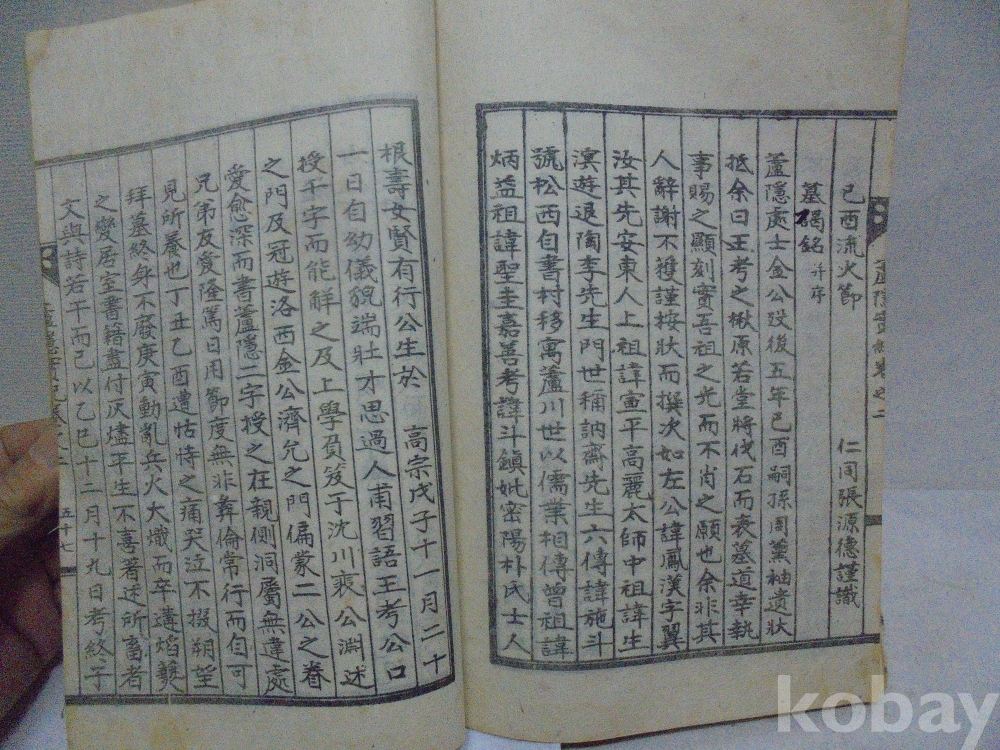 己酉流火節
仁同張源德謹識
墓碣銘 幷序
蘆隱處士金公歿後五年己酉嗣孫周薰袖遺狀
抵余曰王考之楸原若堂將伐石而表墓道幸執
事賜之顯刻實吾祖之光而不肖之願也余非其
人辭謝不獲謹按狀而撰次如左公諱鳳漢字翼
汝其先安東人上祖諱宣平高麗太師中祖諱生
溟遊退陶李先生門世稱訥齋先生六傳諱施斗
號松西自書村移寓蘆川世以儒業相傳曾祖諱
炳益祖諱聖圭嘉善考諱斗鎮妣密陽朴氏士人
根壽女賢有行公生於 高宗戊子十一月二十
一日自幼儀貌端壯才思過人甫習語王考公口
授千字而能解之及上學負笈于沈川裵公淵述
之門及冠遊洛西金公濟允之門偏蒙二公之眷
愛愈深而書蘆隱二字授之在親側洞屬無違處
兄弟友愛隆篤日用節度無非彝倫常行而自可
見所養也丁丑乙酉遭怙恃之痛哭泣不掇朔望
拜墓終身不廢庚寅動亂兵火大熾而卒遘焰
之變居室書籍盡付灰燼平生不喜著述所畜者
文與詩若干而已以乙巳十二月十九日考終于
五十七
kobay